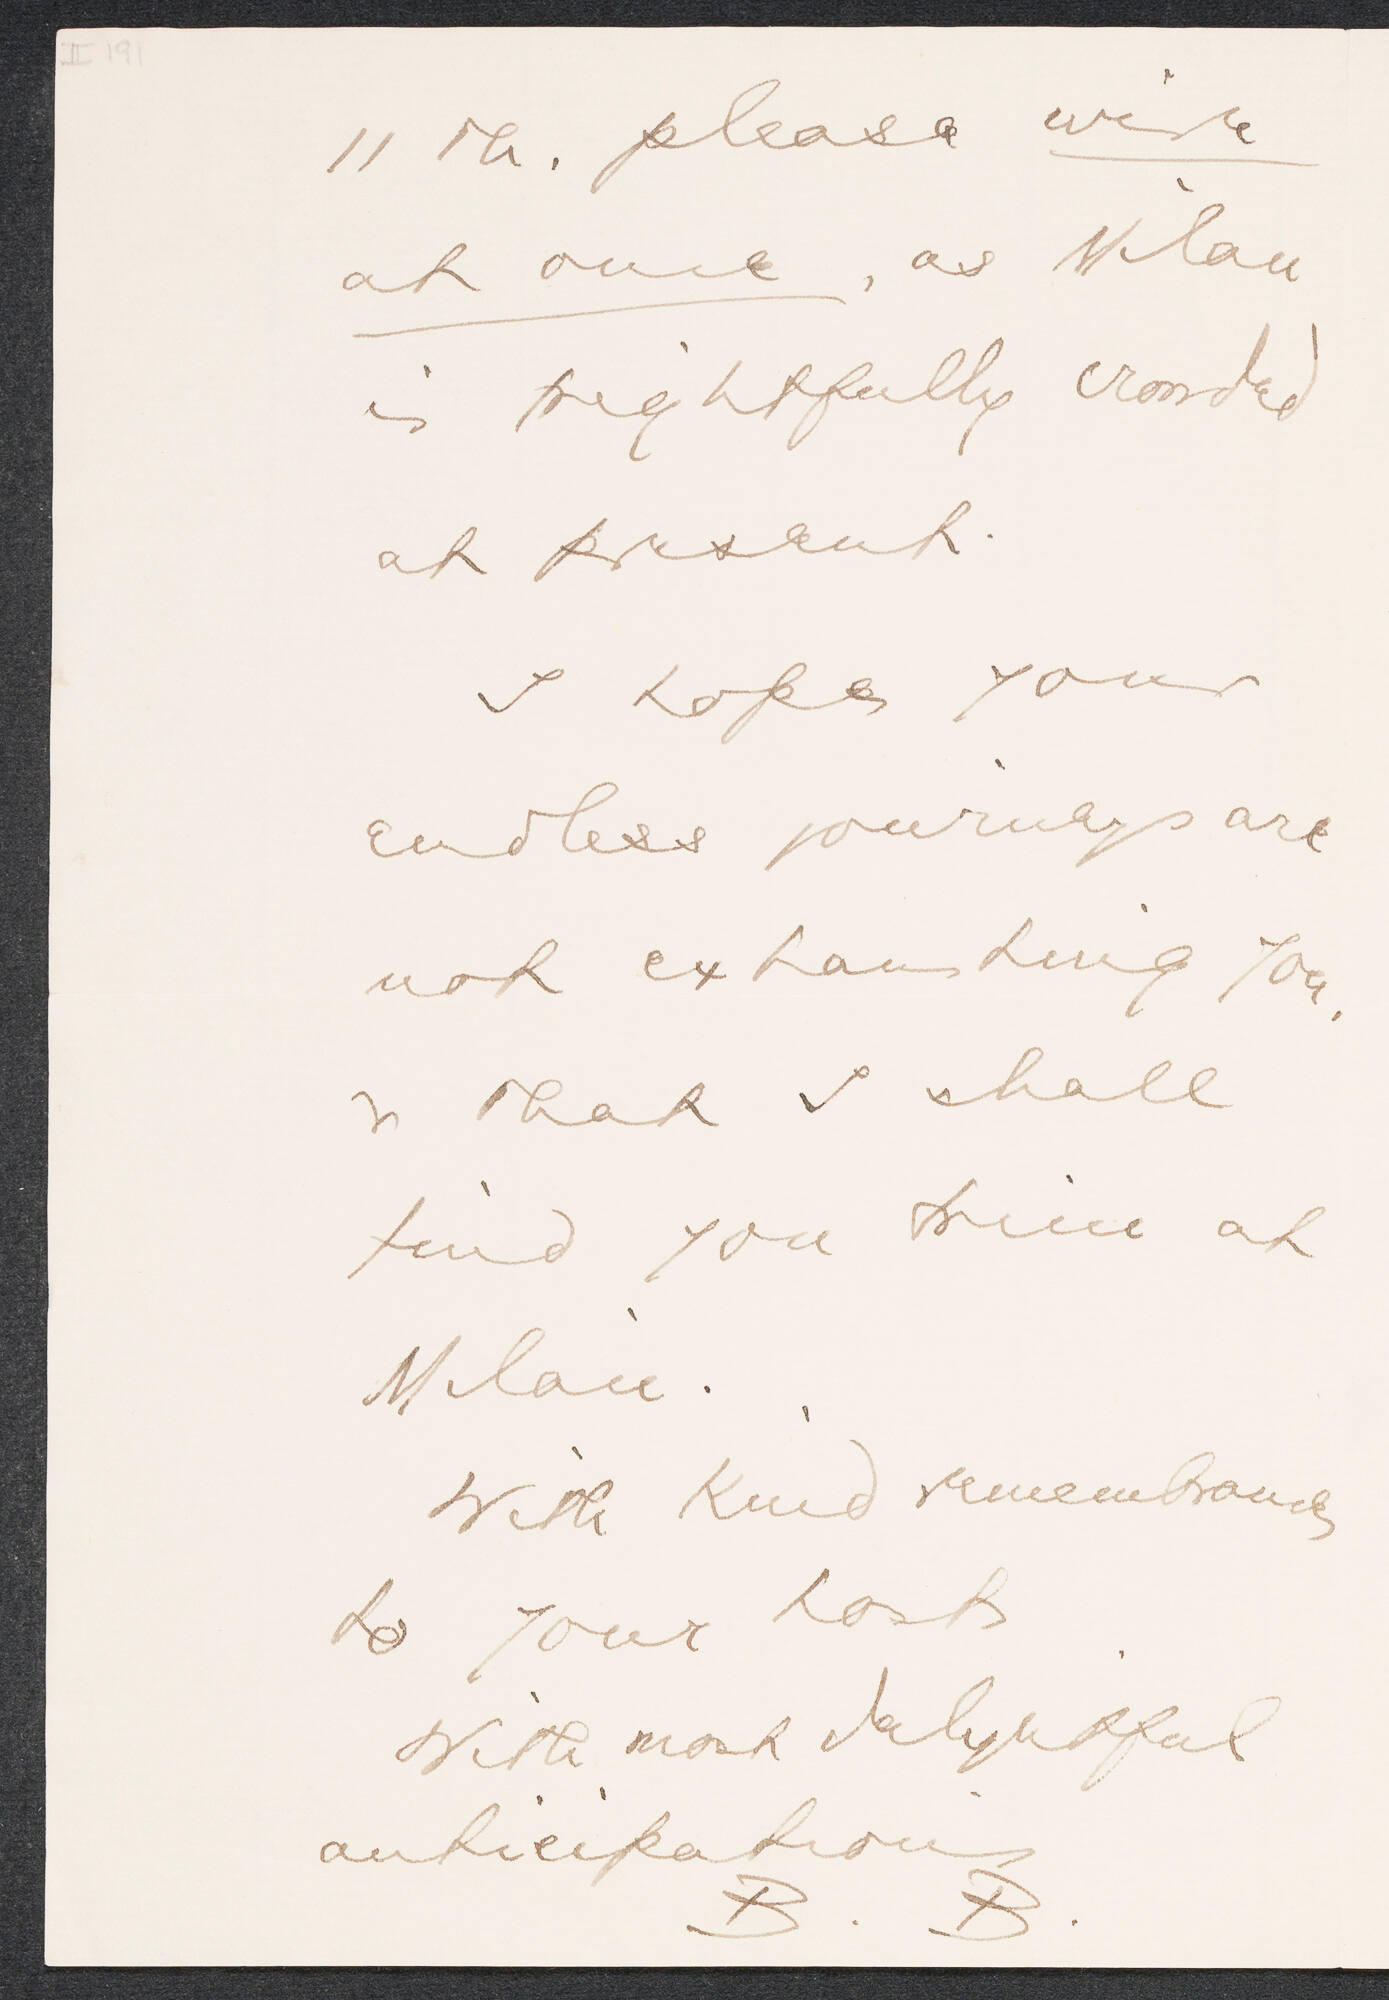 II 191
11th. please wire
at once, as Milan
is frightfully crowded
at present.
I hope your
endless journeys are
not exhausting you,
& that I shall
find you at
Milan.
With kind remembrances
to your hosts
With most delightful
anticipations
B. B.